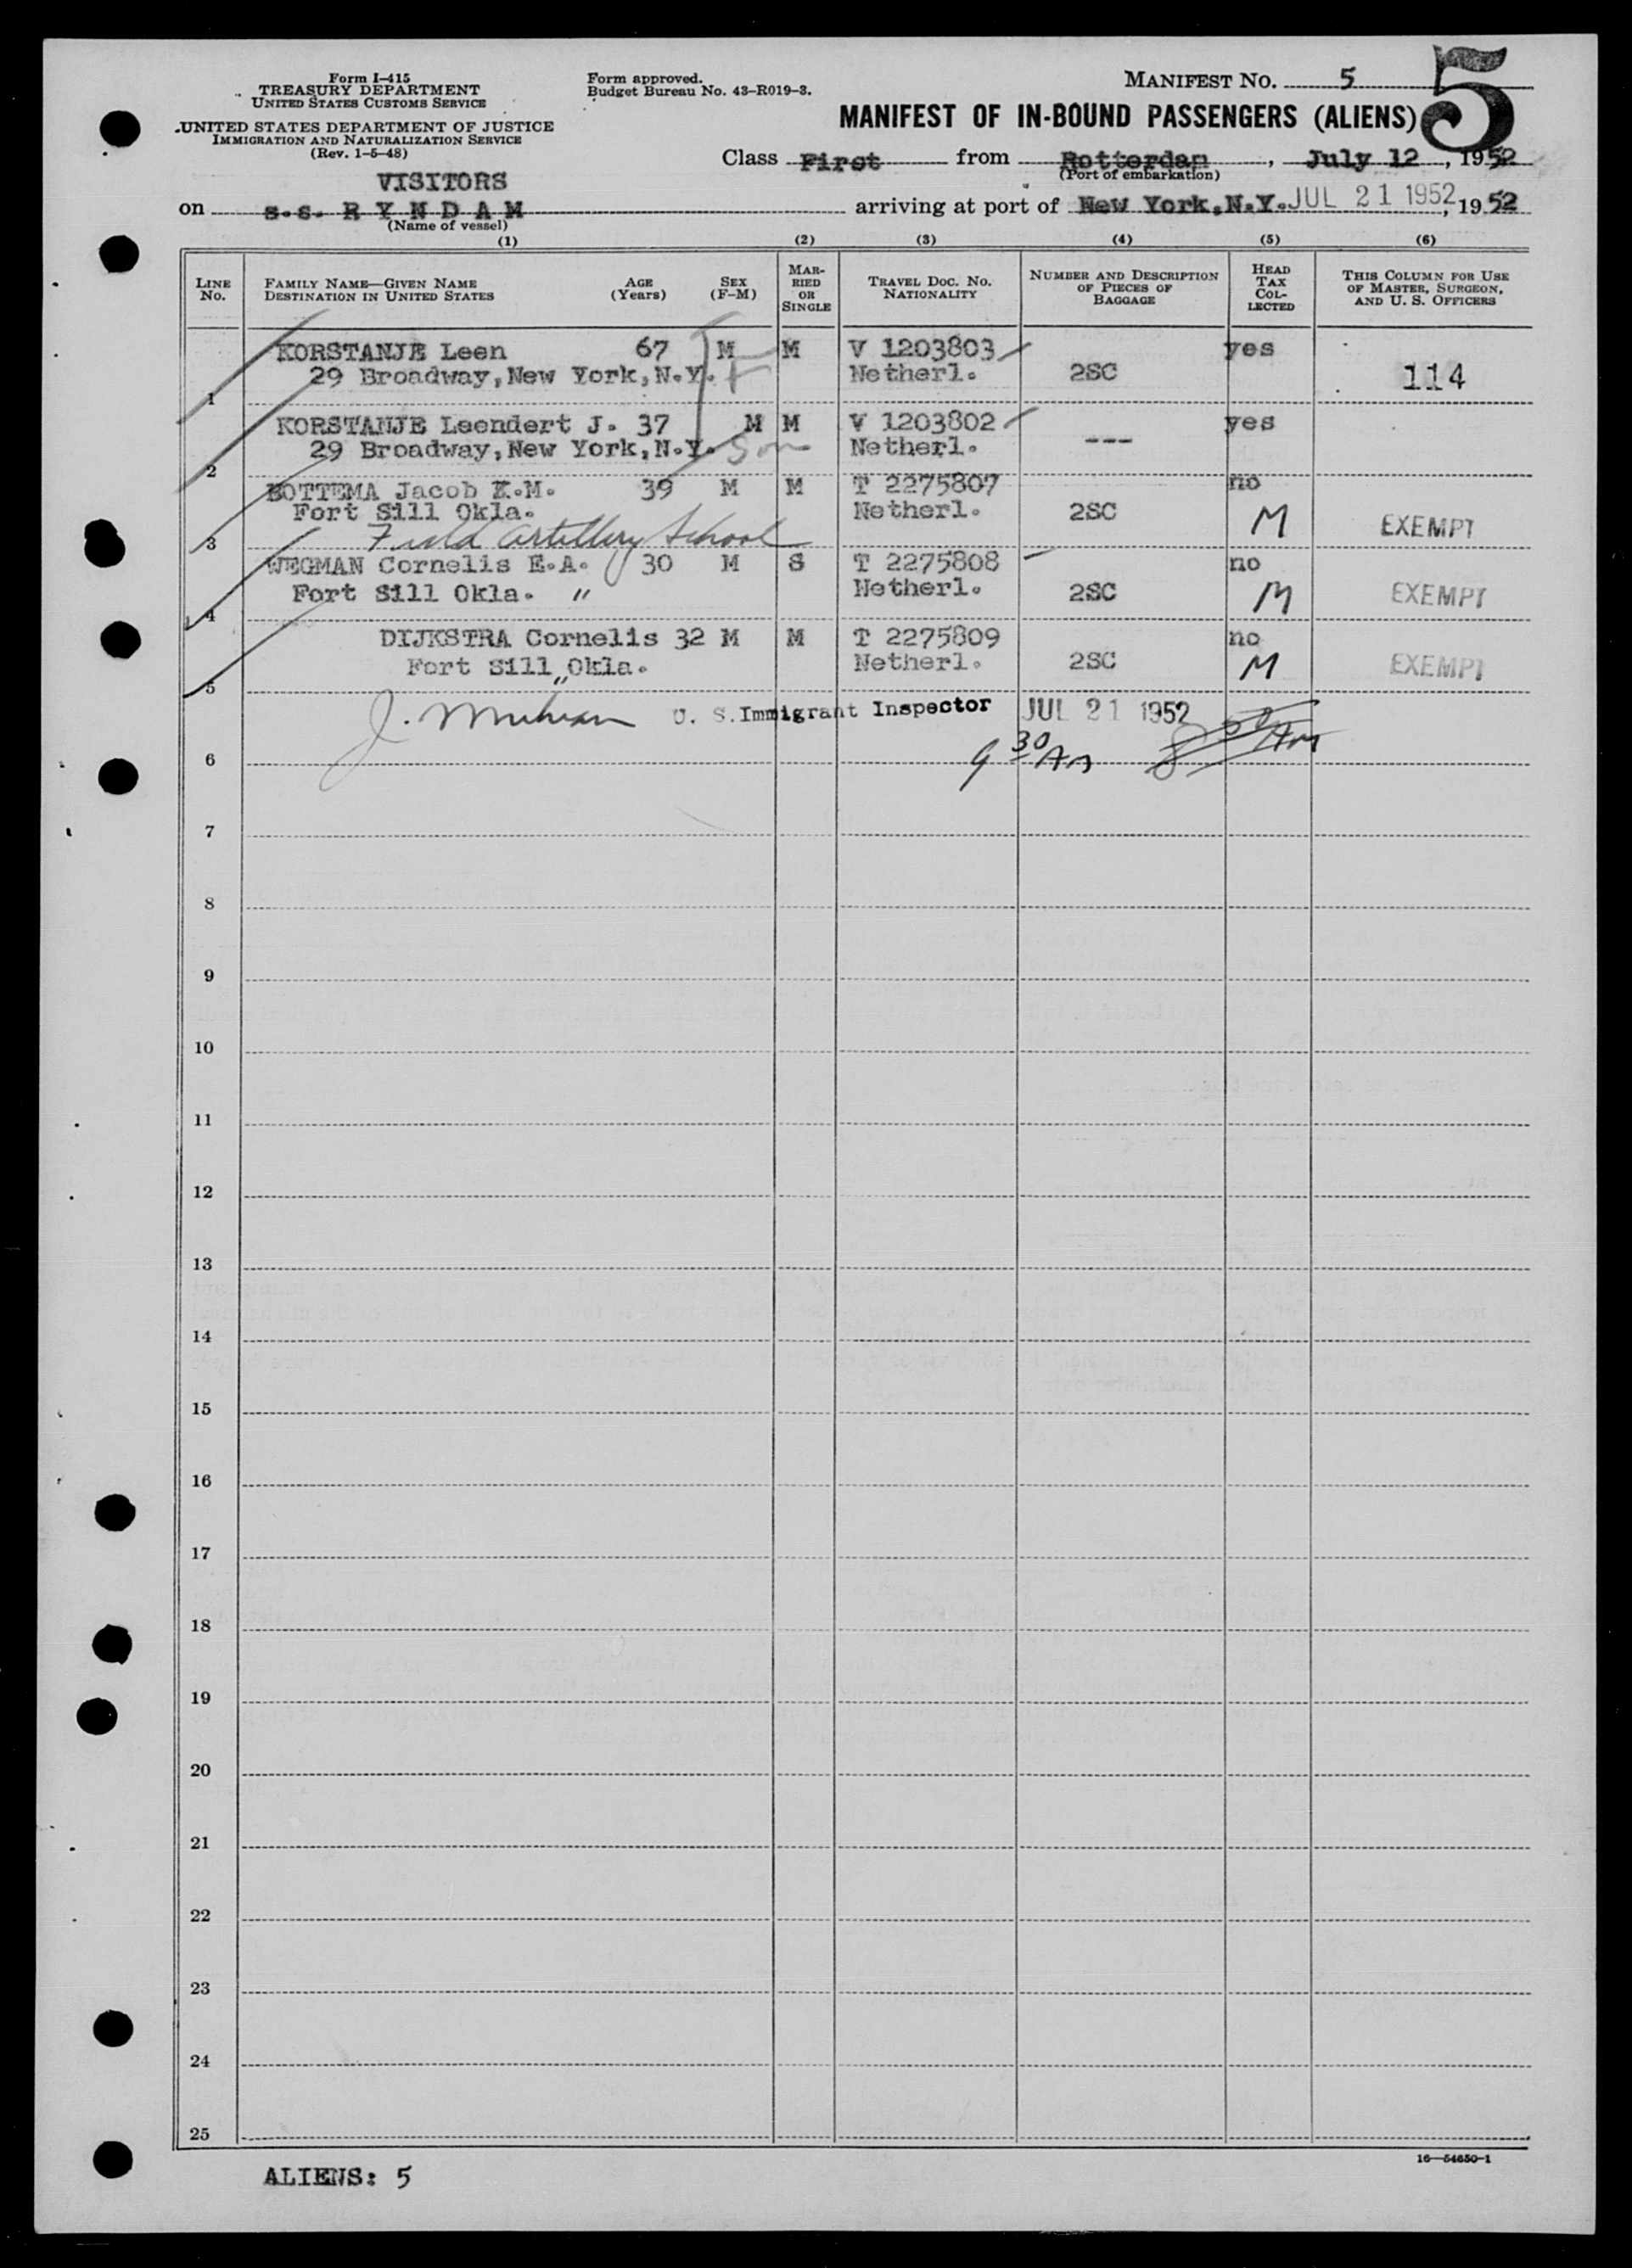 Form I-415
TREASURY DEPARTMENT
UNITED STATES CUSTOMS SERVICE
UNITED STATES DEPARTMENT OF JUSTICE
IMMIGRATION AND NATURALIZATION SERVICE
(Rev. 1-5-48)
Form approved.
Budget Bureau No. 43-R019-3.
MANIFEST NO. 5
5
MANIFEST OF IN-BOUND PASSENGERS (ALIENS)
Class First from Rotterdam, July 12, 1952
(Port of embarkation)
VISITORS
on s.s. RYNDAM arriving at port of New York,N.Y. JUL 21 1952, 1952
(Name of vessel)
(1) (2) (3) (4) (5) (6)
LINE No. FAMILY NAME—GIVEN NAME DESTINATION IN UNITED STATES AGE (Years) SEX (F-M) MARRIED OR SINGLE TRAVEL DOC. NO. NATIONALITY NUMBER AND DESCRIPTION OF PIECES OF BAGGAGE HEAD TAX COLLECTED THIS COLUMN FOR USE OF MASTER, SURGEON, AND U. S. OFFICERS
KORSTANJE Leen 67 M M V 1203803 yes
1 29 Broadway,New York,N.Y. Netherl. 2SC 114
KORSTANJE Leendert J. 37 M M V 1203802 yes
2 29 Broadway,New York,N.Y. Son Netherl. ---
BOTTEMA Jacob K.M. 39 M M T 2275807 no
Fort Sill Okla. Netherl. 2SC M EXEMPT
3 Field Artillery School
WEGMAN Cornelis E.A. 30 M S T 2275808 no
4 Fort Sill Okla. " Netherl. 2SC M EXEMPT
DIJKSTRA Cornelis 32 M M T 2275809 no
5 Fort Sill Okla. " Netherl. 2SC M EXEMPT
J. U. S. Immigrant Inspector JUL 21 1952
6 9 30 Am 8 50 Am
7
8
9
10
11
12
13
14
15
16
17
18
19
20
21
22
23
24
25
16—54650-1
ALIENS: 5